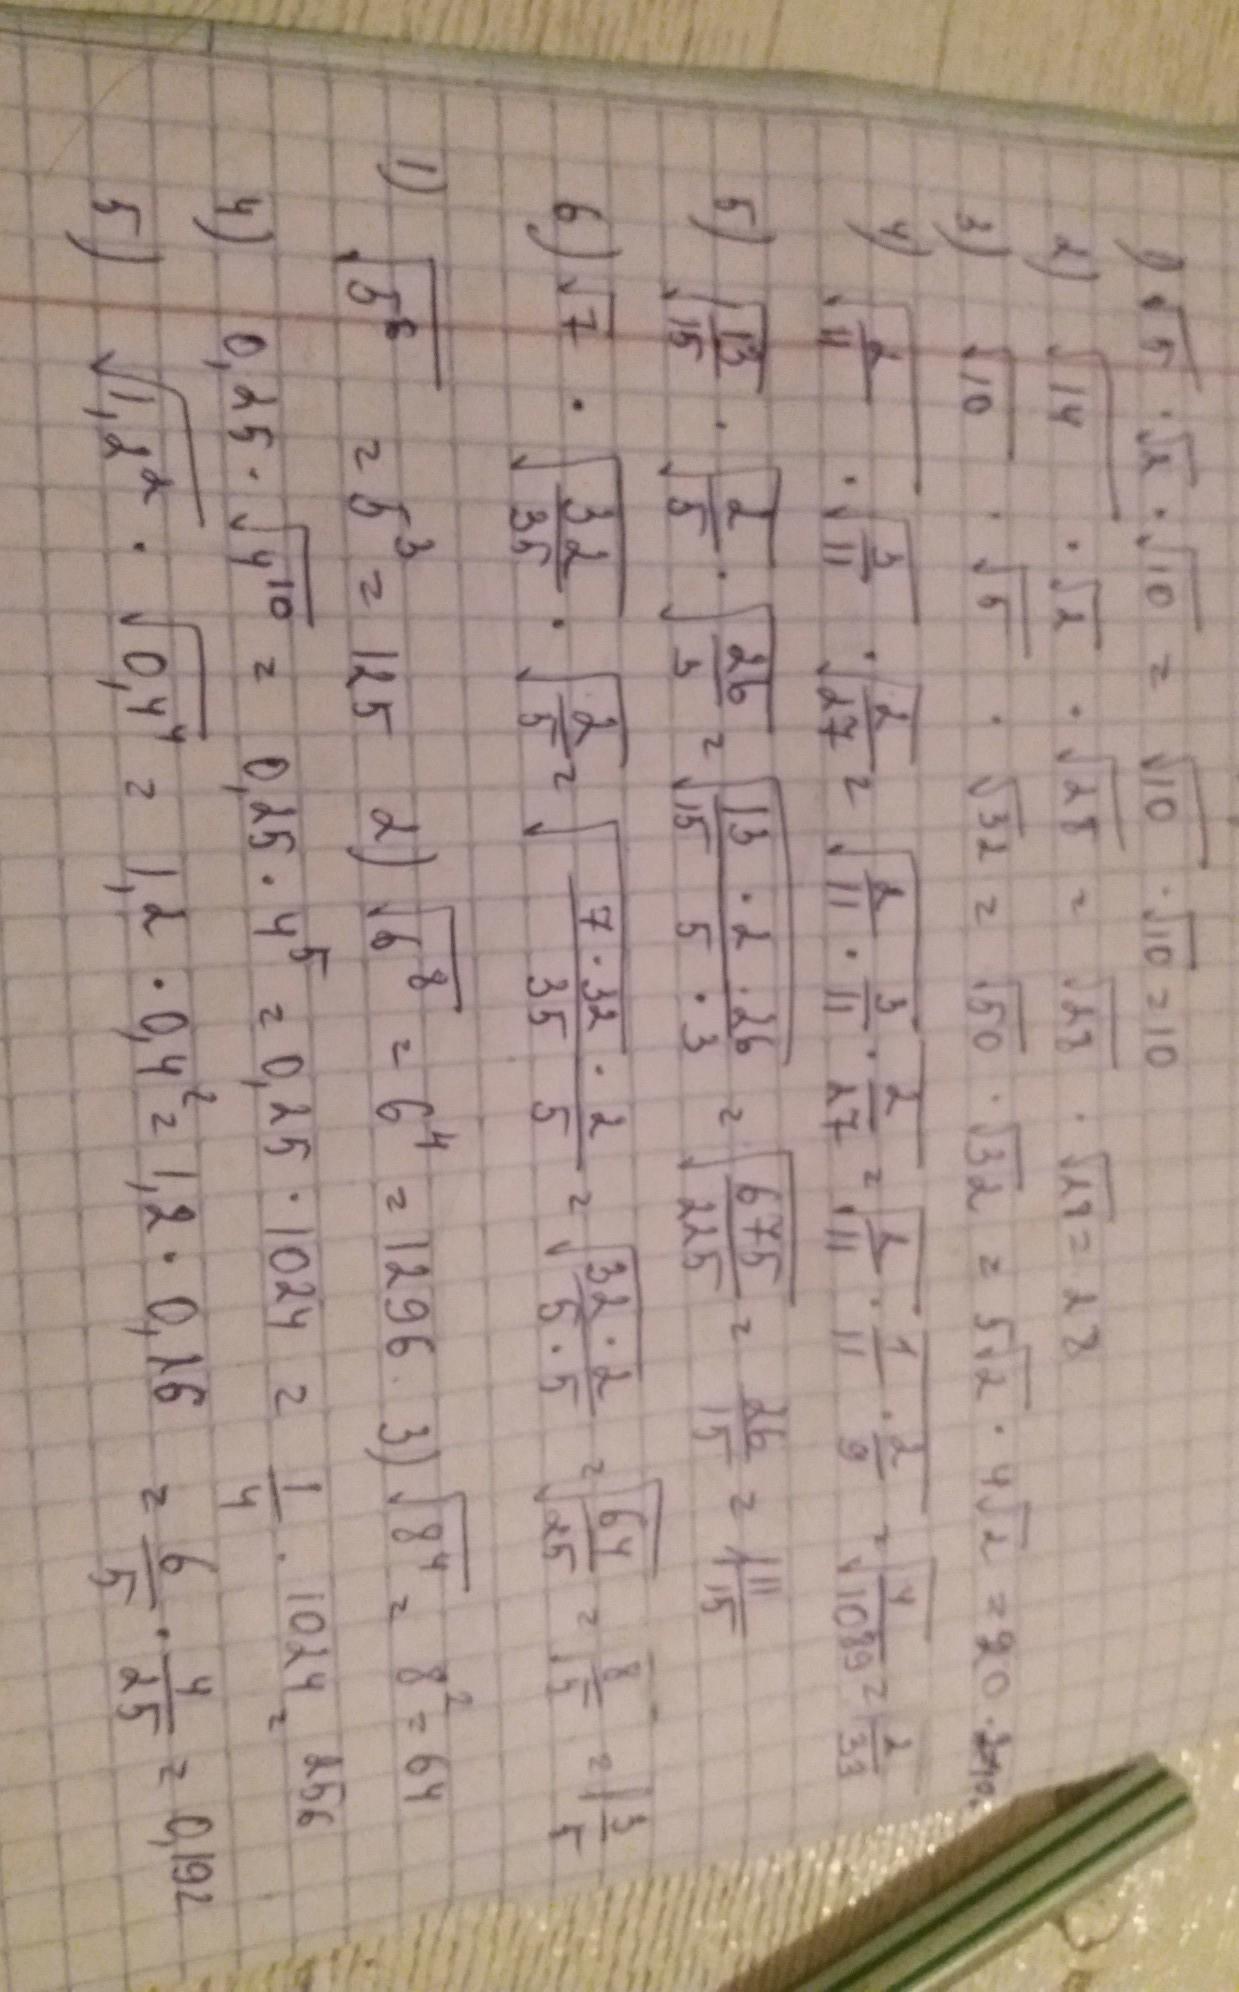 1) √5 · √2 · √10 = √10 · √10 = 10
2) √14 · √2 · √28 = √28 · √28 = 28
3) √10 · √5 · √32 = √50 · √32 = 5√2 · 4√2 = 20 ·
4) √2/11 · √3/11 · √2/27 = √2/11 · 3/11 · 2/27 = √2/11 · 1/11 · 2/9 = √4/1089 = 2/33
5) √13/15 · √2/5 · √26/3 = √13 · 2 · 26/15 5 · 3 = √675/225 = 26/15 = 1 11/15
6) √7 · √32/35 · √2/5 = √7 · 32 · 2/35 5 = √32 · 2/5 · 5 = √64/25 = 8/5 = 1 3/5
1) √5⁶ = 5³ = 125 2) √6⁸ = 6⁴ = 1296. 3) √8⁴ = 8² = 64
4) 0,25 · √4¹⁰ = 0,25 · 4⁵ = 0,25 · 1024 = 1/4 · 1024 = 256
5) √1,2² · √0,4⁴ = 1,2 · 0,4² = 1,2 · 0,16 = 6/5 · 4/25 = 0,192